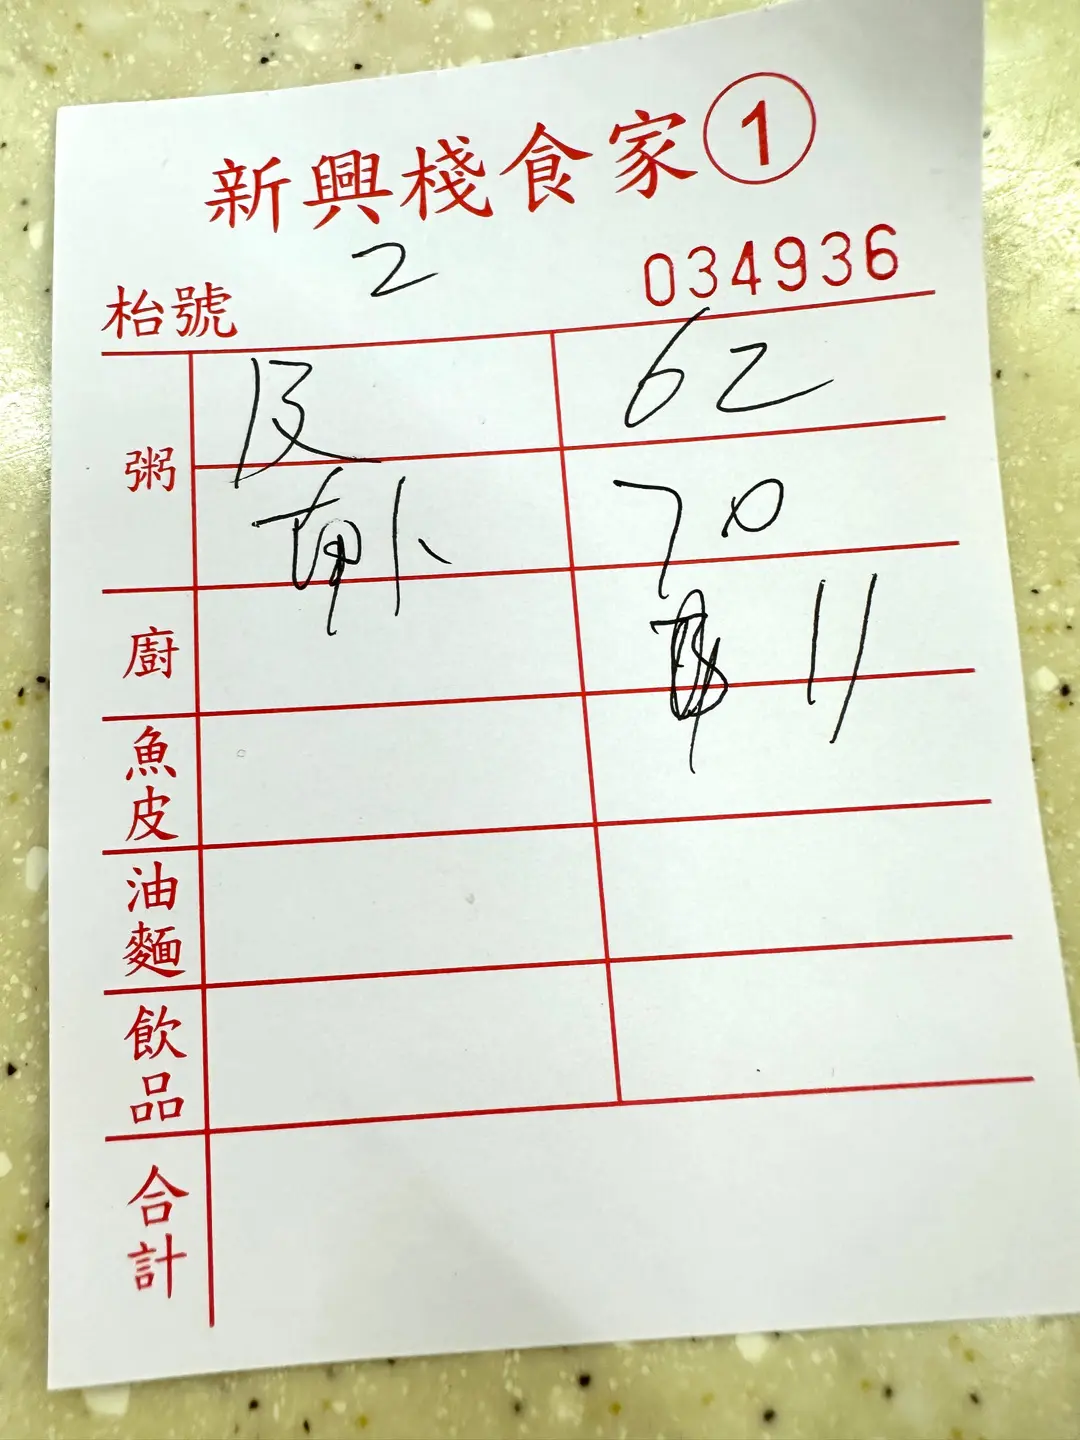 新興棧食家①
2
034936
枱號
粥
反 62
70
廚
11
魚皮
油麵
飲品
合計